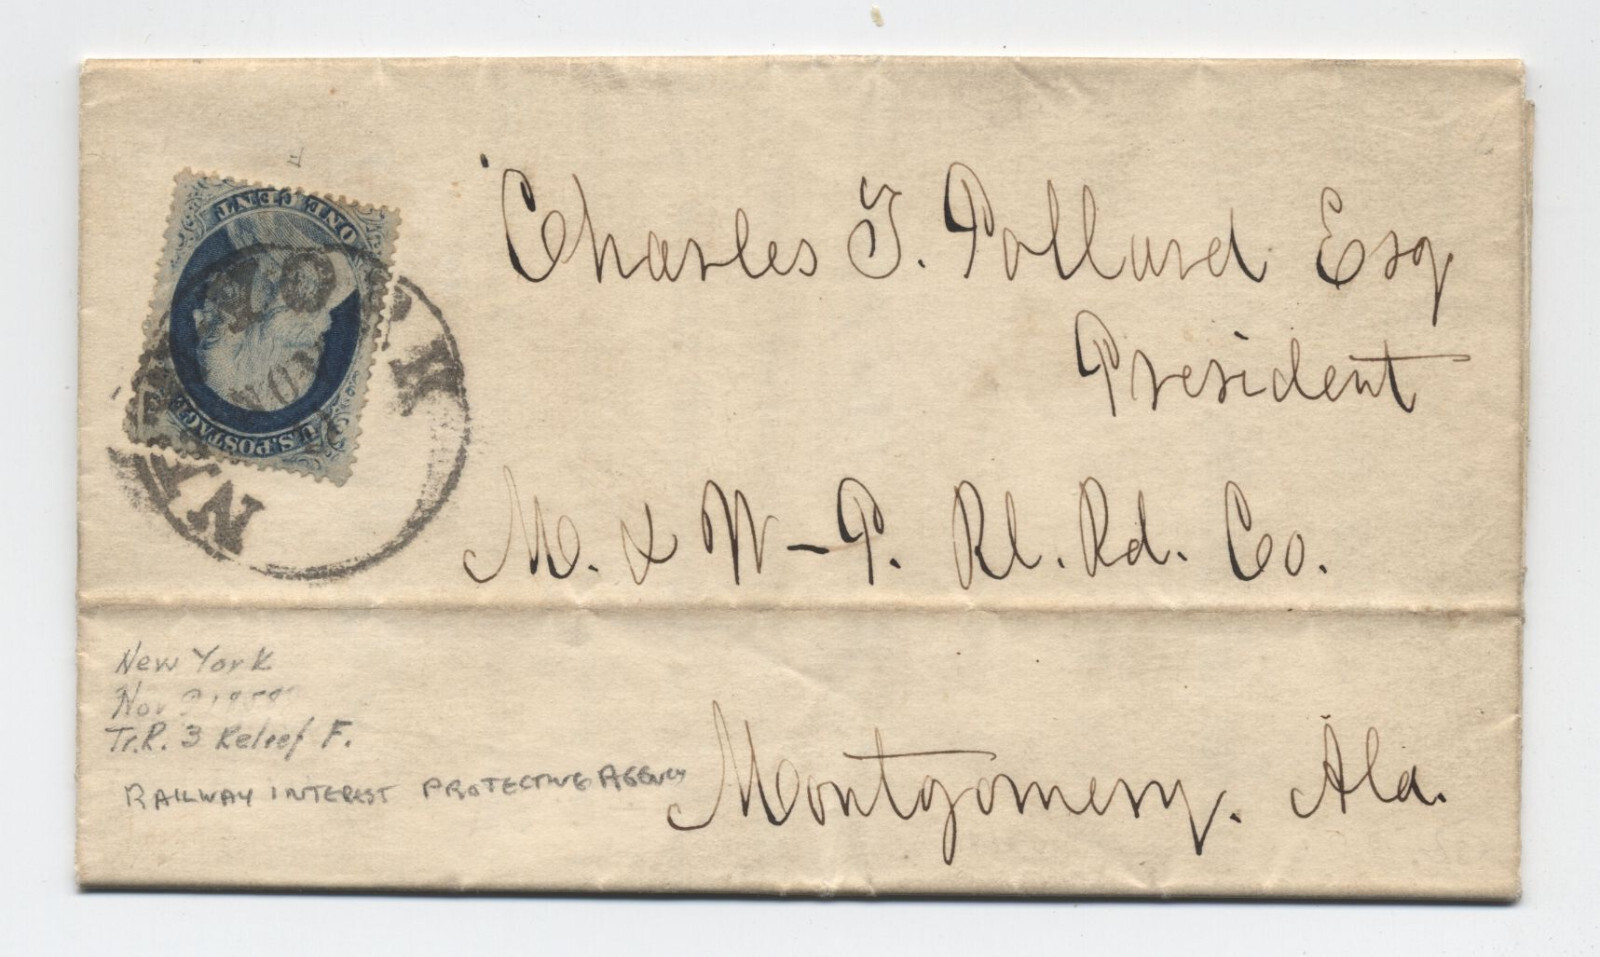 ONE CENT
U.S. POSTAGE
NEW YORK
NOV
Charles T. Pollard Esq
President
M. & W-P. Rl. Rd. Co.
Montgomery. Ala.
New York
Nov
Tr.R. 3 Relief F.
RAILWAY INTEREST PROTECTIVE AGENCY